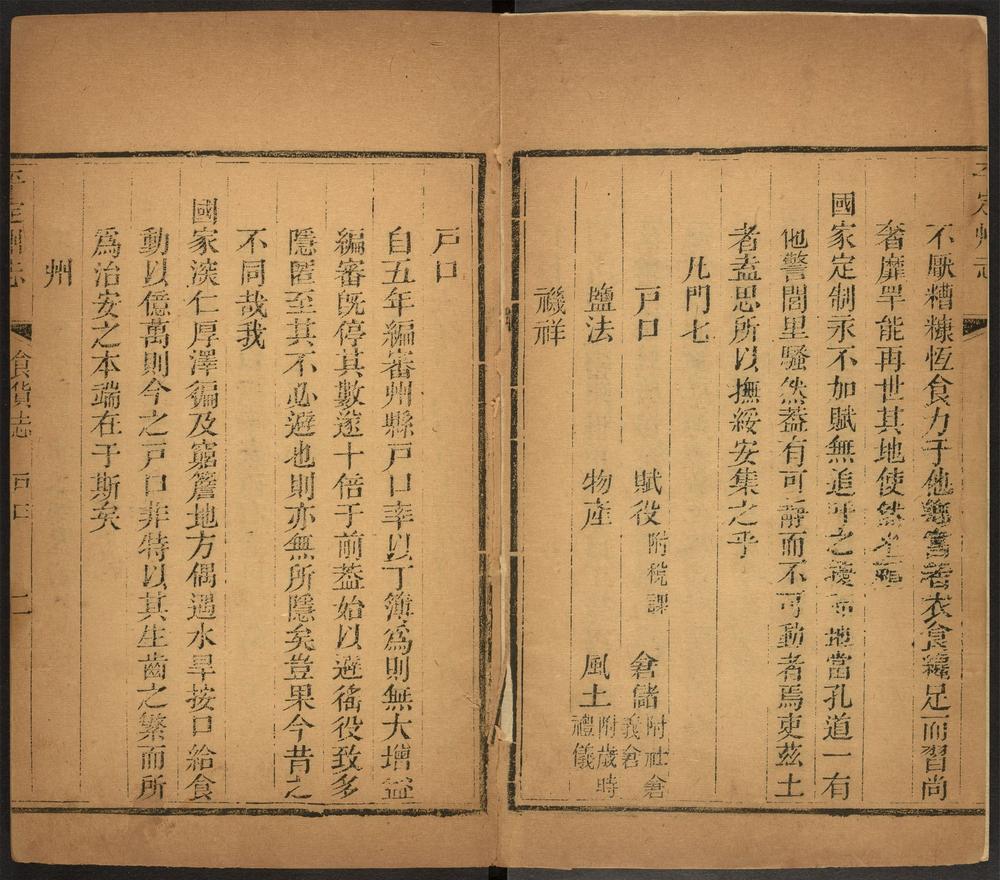 不厭糟糠恆食力于他鄉富者衣食纔足而習尚
奢靡罕能再世其地使然者
國家定制永不加賦無追呼之擾而地當孔道一有
他警閭里騷然葢有可靜而不可動者焉吏茲土
者葢思所以撫綏安集之乎
凡門七
戸口 賦役附稅課 倉儲附社倉義倉
鹽法 物産 風土附歲時禮儀
禨祥
戸口
自五年編審州縣戸口率以丁簿爲則無大增益
編審旣停其數遂十倍于前葢始以避徭役致多
隱匿至其不必避也則亦無所隱矣豈果今昔之
不同哉我
國家深仁厚澤徧及窮簷地方偶遇水旱按口給食
動以億萬則今之戸口非特以其生齒之繁而所
爲治安之本端在于斯矣
州
平定州志 食貨志 戸口 二